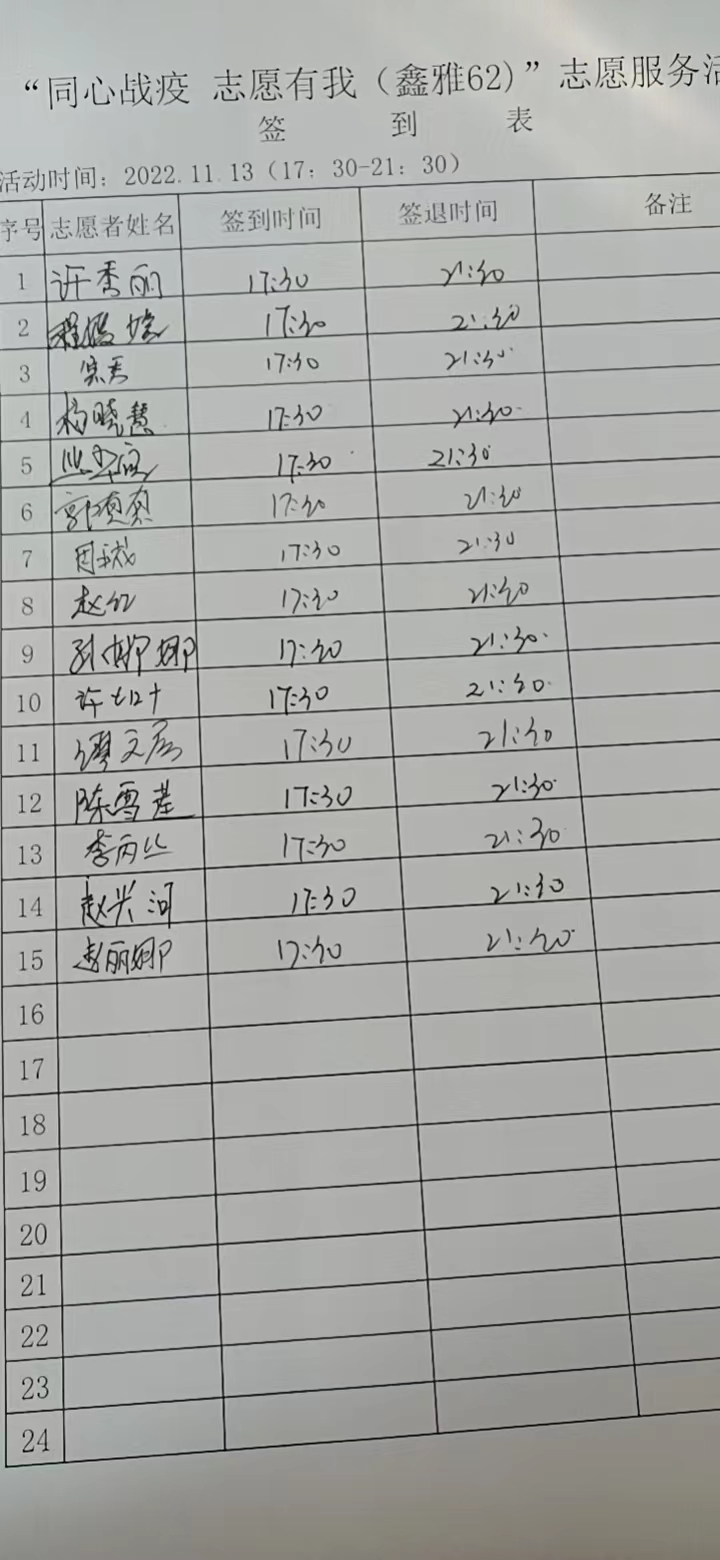 “同心战疫 志愿有我（鑫雅62）”志愿服务活
签 到 表
活动时间：2022.11.13（17：30-21：30）
序号 志愿者姓名 签到时间 签退时间 备注
1 许秀丽 17:30 21:30
2 17:30 21:30
3 17:30 21:30
4 杨晓慧 17:30 21:30
5 17:30 21:30
6 17:30 21:30
7 17:30 21:30
8 赵红 17:30 21:30
9 孙娜娜 17:30 21:30
10 许 17:30 21:30
11 谭文 17:30 21:30
12 陈雪莲 17:30 21:30
13 李丙 17:30 21:30
14 赵兴河 17:30 21:30
15 李丽娜 17:30 21:30
16
17
18
19
20
21
22
23
24